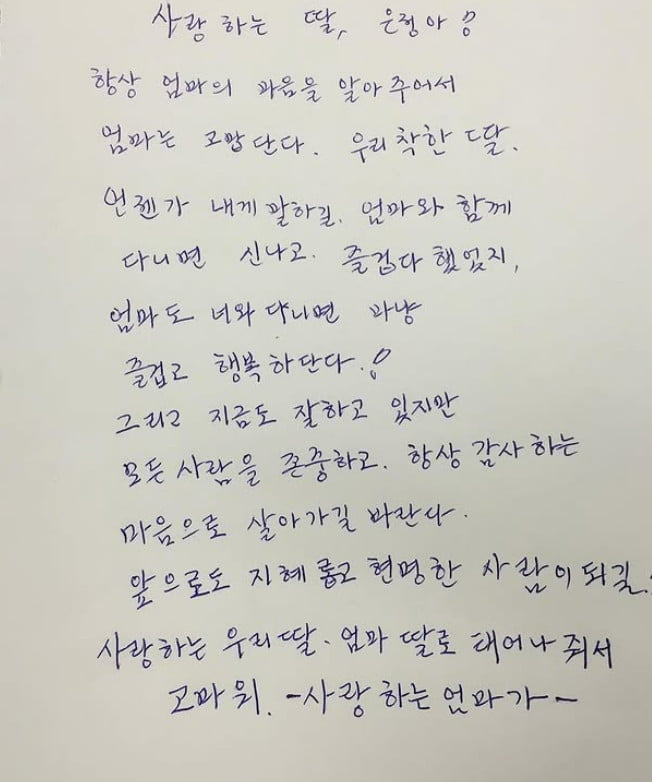 사랑하는 딸, 은정아!
항상 엄마의 마음을 알아주어서
엄마는 고맙단다. 우리 착한 딸.
언젠가 내게 말하길. 엄마와 함께
다니면 신나고. 즐겁다 했었지,
엄마도 너와 다니면 마냥
즐겁고 행복하단다.!
그리고 지금도 잘하고 있지만
모든 사람을 존중하고. 항상 감사하는
마음으로 살아가길 바란다.
앞으로도 지혜롭고 현명한 사람이 되길.
사랑하는 우리 딸. 엄마 딸로 태어나 줘서
고마워. -사랑하는 엄마가-